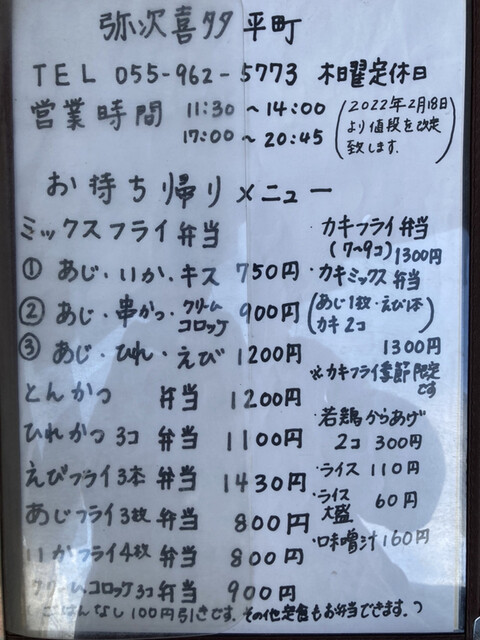 弥次喜多 平町
TEL 055-962-5773 木曜定休日
営業時間 11:30～14:00
17:00～20:45
(2022年2月18日
より値段を改定
致します.)
お持ち帰りメニュー
ミックスフライ 弁当
① あじ・いか・キス 750円
② あじ・串かつ・クリームコロッケ 900円
③ あじ・ひれ・えび 1200円
とんかつ 弁当 1200円
ひれかつ3コ 弁当 1100円
えびフライ3本 弁当 1430円
あじフライ3枚 弁当 800円
いかフライ4枚 弁当 800円
クリームコロッケ3コ 弁当 900円
(ごはんなし100円引きです. その他定食もお弁当できます.)
カキフライ弁当
(7～9コ) 1300円
・カキミックス 弁当
(あじ1枚・えび1本
カキ2コ)
1300円
※カキフライ季節限定
です
・若鶏からあげ
2コ 300円
・ライス 110円
・ライス
大盛 60円
・味噌汁 160円